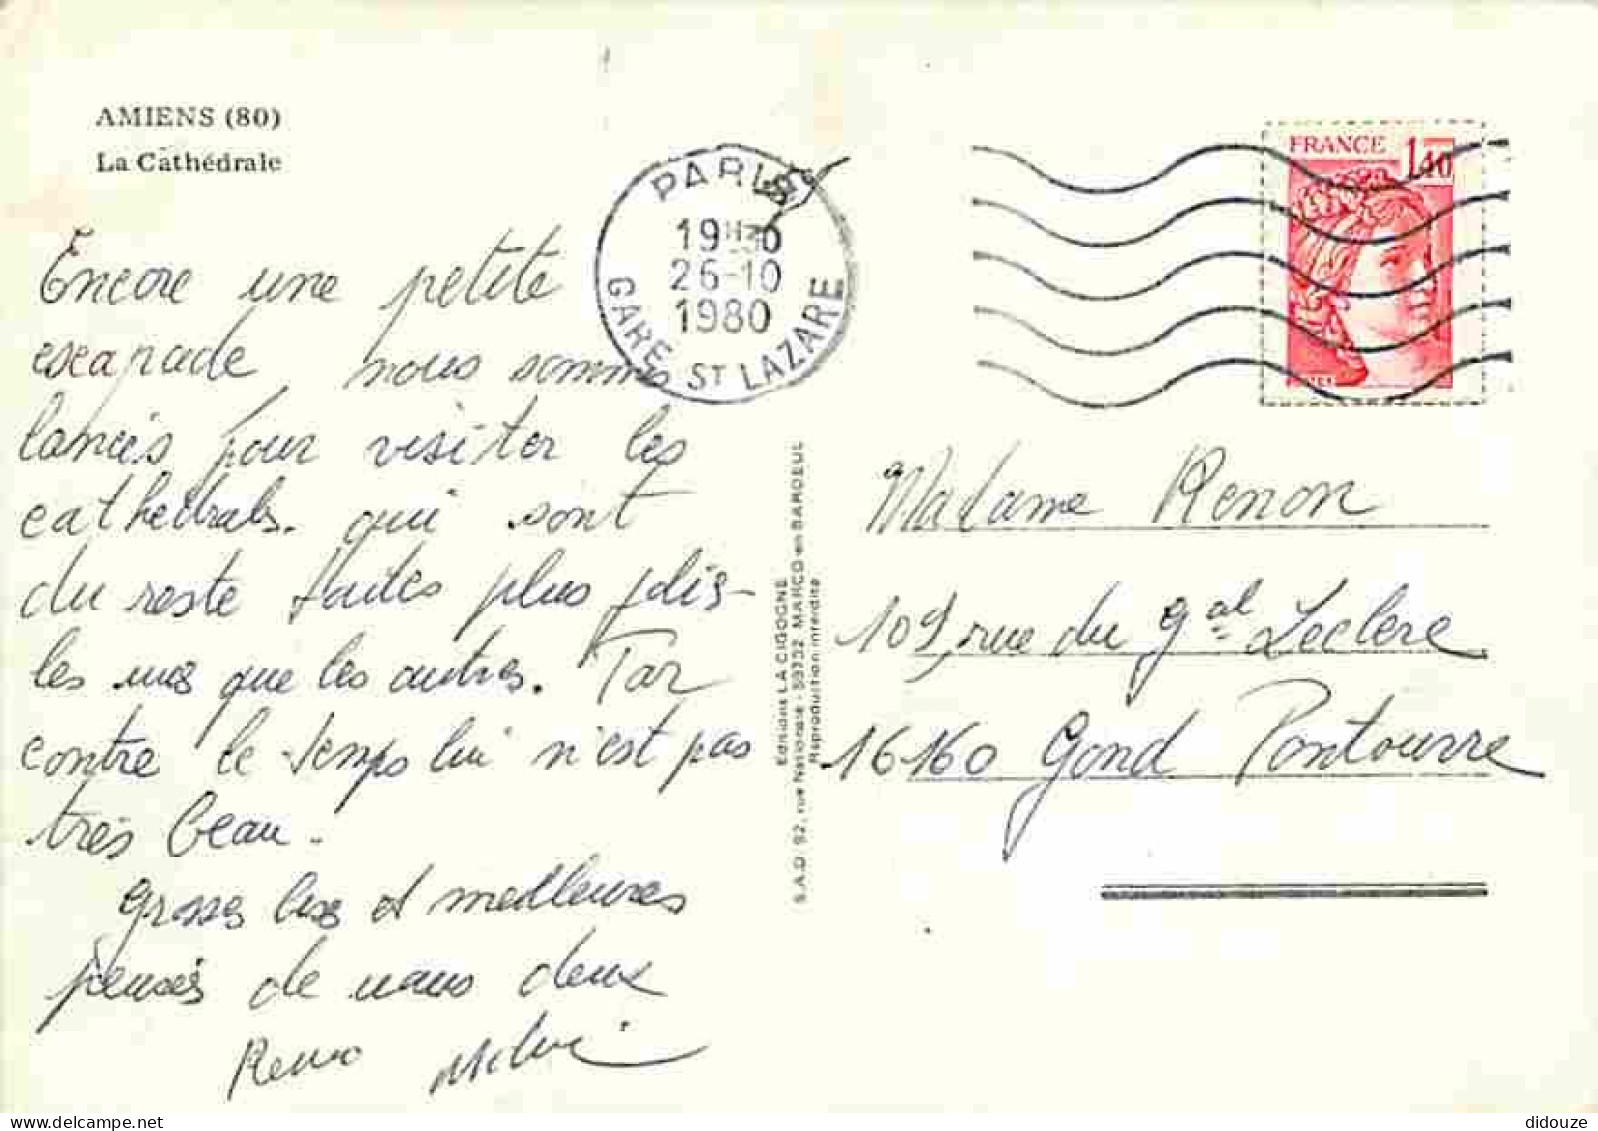 AMIENS (80)
La Cathédrale
Encore une petite
escapade nous sommes
lancés pour visiter les
cathédrales. qui sont
du reste toutes plus jolis-
les unes que les autres. Par
contre le temps lui n'est pas
très beau.
Grosses bises et meilleures
pensées de nous deux
PARIS
19H30
26-10
1980
GARE ST LAZARE
FRANCE 1,40
Editions LA CIGOGNE
S.A.D. 92, rue Nationale - 59732 MARCQ-en-BAROEUL
Reproduction interdite
Madame Renon
109, rue du Gal Leclerc
16160 Gond Pontouvre
delcampe.net
didouze